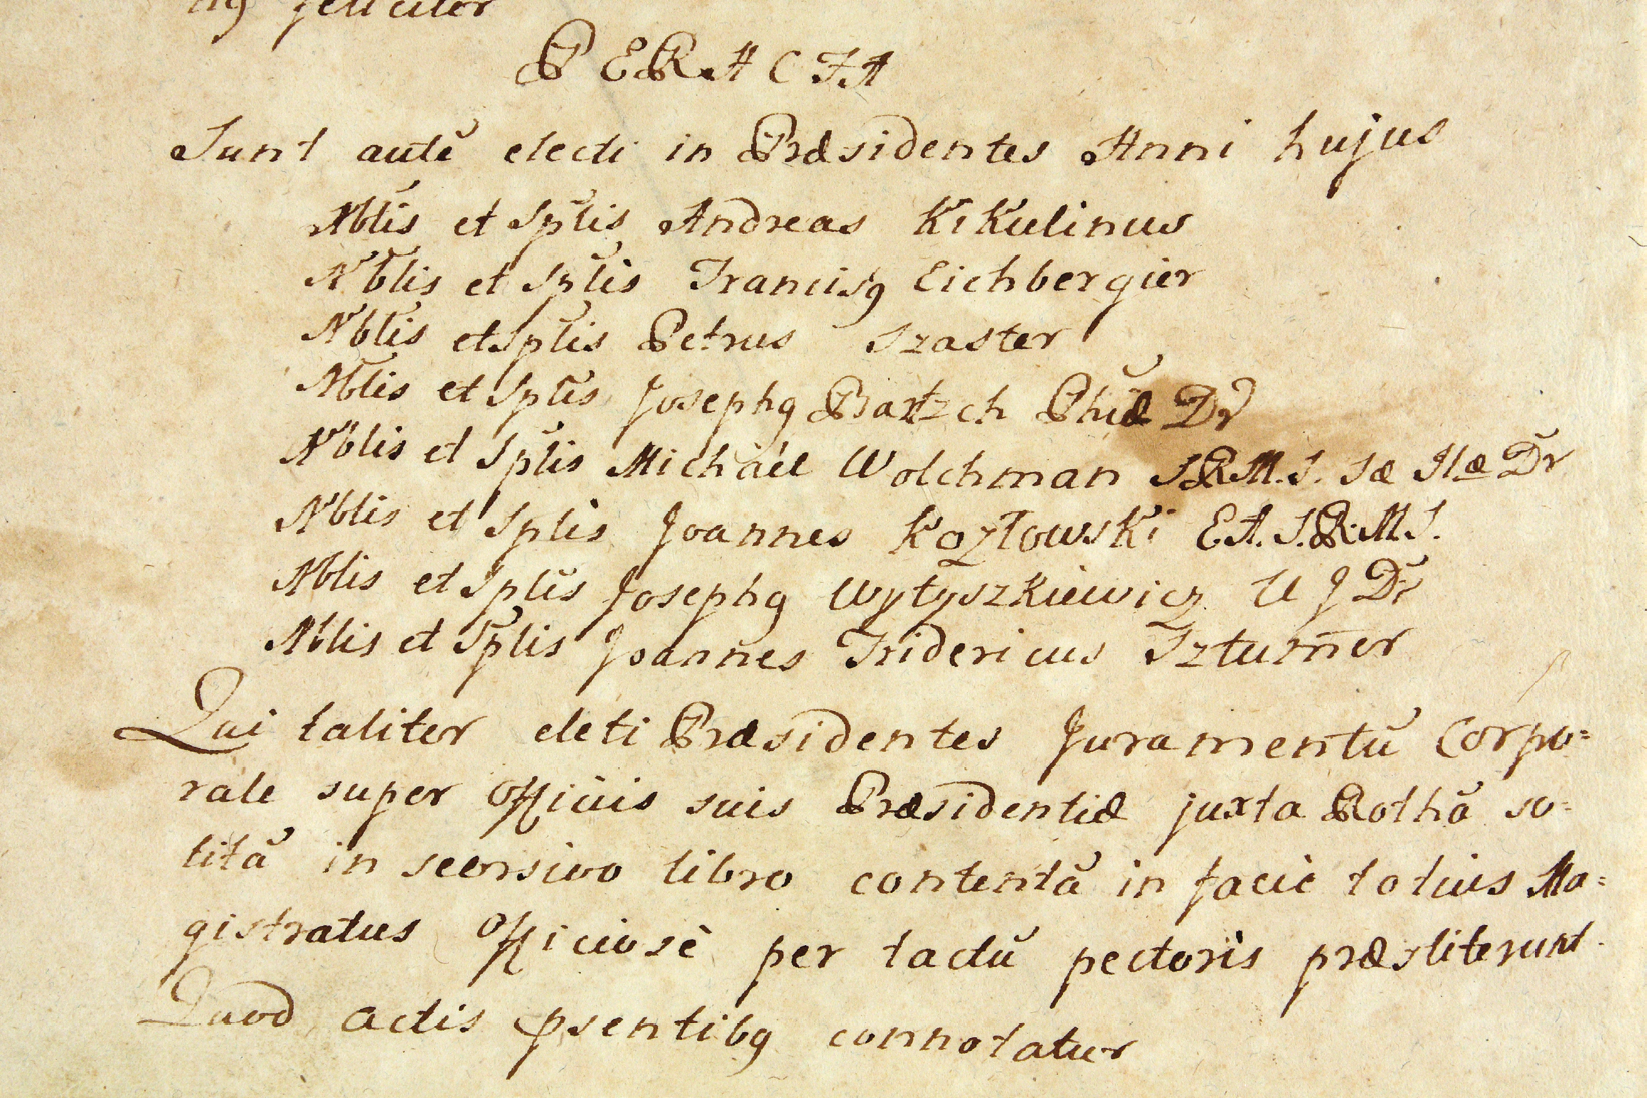 feliciter
PERACTA
Sunt autẽ electi in Præsidentes Anni hujus
Nblis et Sptlis Andreas Kikulinus
Nblis et Sptlis Francisq Eichbergier
Nblis et Sptlis Petrus Szaster
Nblis et Sptlis Josephq Bartzch Phiæ Dr
Nblis et Sptlis Michael Wolchman S.R.M.S. Sæ Dr
Nblis et Sptlis Joannes Kozłowski E.A. S.R.M.S.
Nblis et Sptlis Josephq Wytyszkiewicz U J Dr
Nblis et Sptlis Joannes Fridericus Szturmer
Qui taliter eleti Præsidentes Juramentũ Corpo=
rale super Officiis suis Præsidentiæ juxta Rothã so=
litã in seorsivo libro contentã in facie totius Ma=
gistratus Officiosè per tactũ pectoris præstiterunt.
Quod actis psentibq connotatur